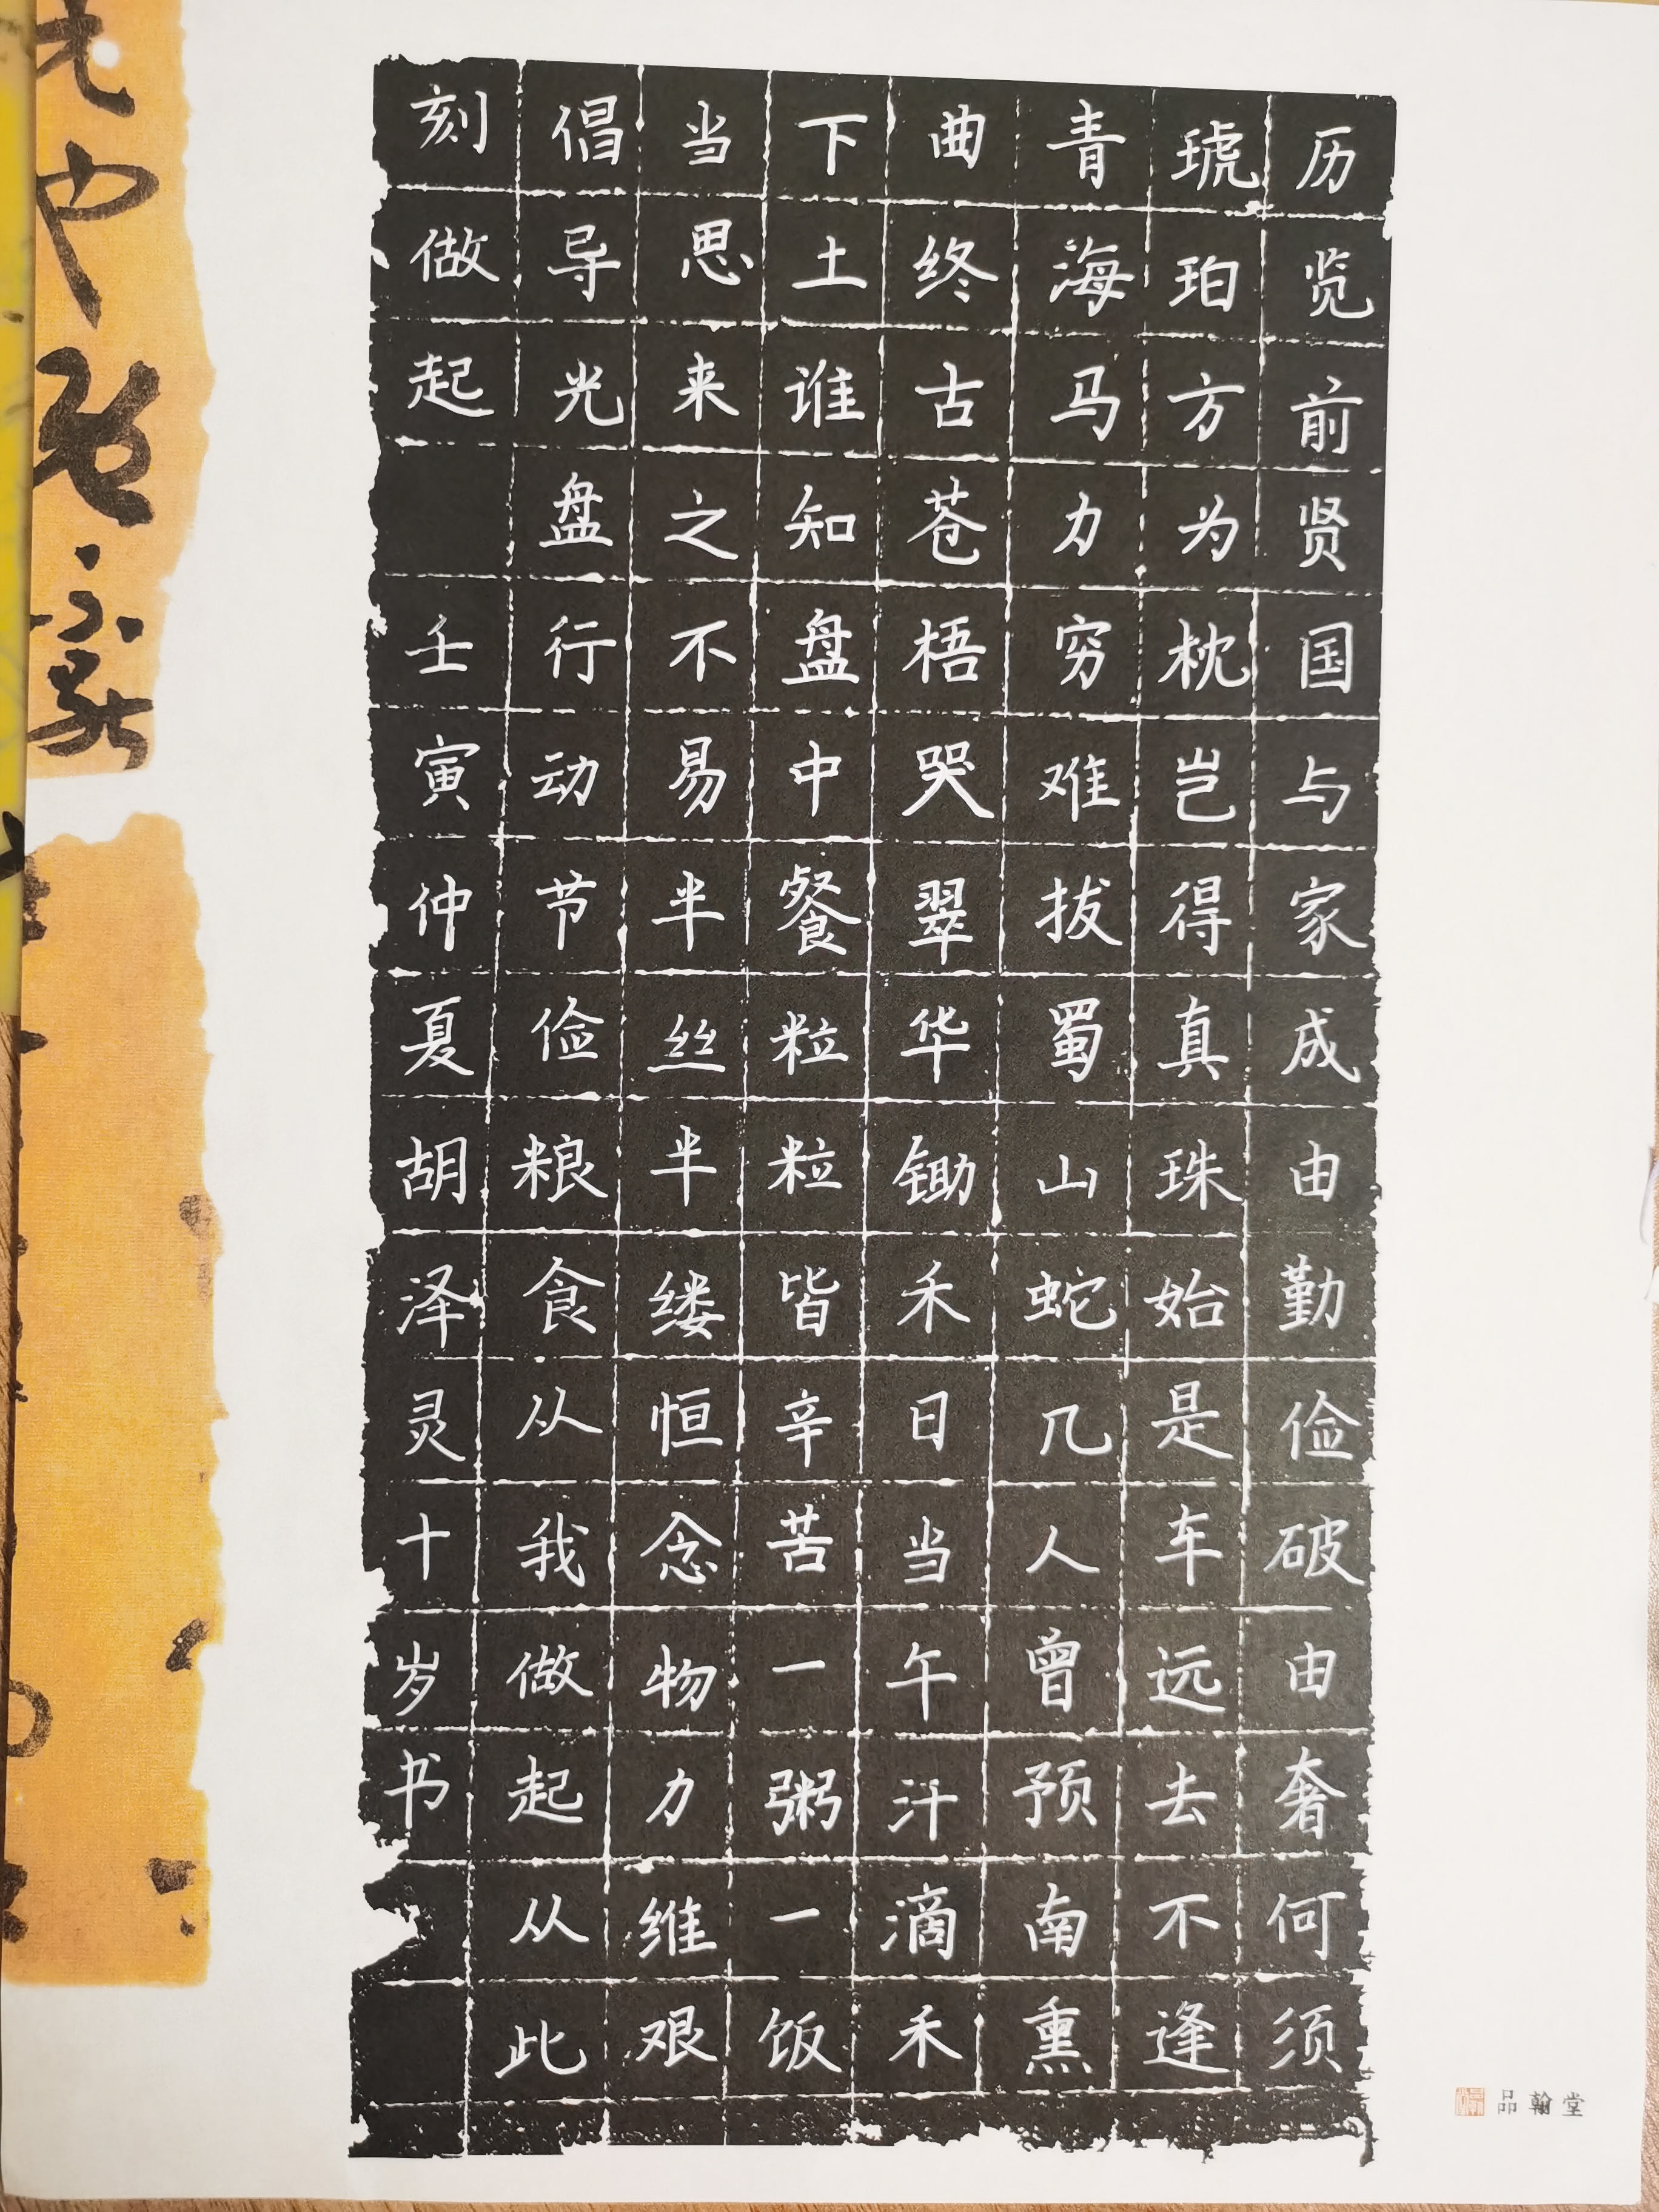 历览前贤国与家成由勤俭破由奢何须
琥珀方为枕岂得真珠始是车远去不逢
青海马力穷难拔蜀山蛇几人曾预南熏
曲终古苍梧哭翠华锄禾日当午汗滴禾
下土谁知盘中餐粒粒皆辛苦一粥一饭
当思来之不易半丝半缕恒念物力维艰
倡导光盘行动节俭粮食从我做起从此
刻做起 壬寅仲夏胡泽灵十岁书
品翰堂